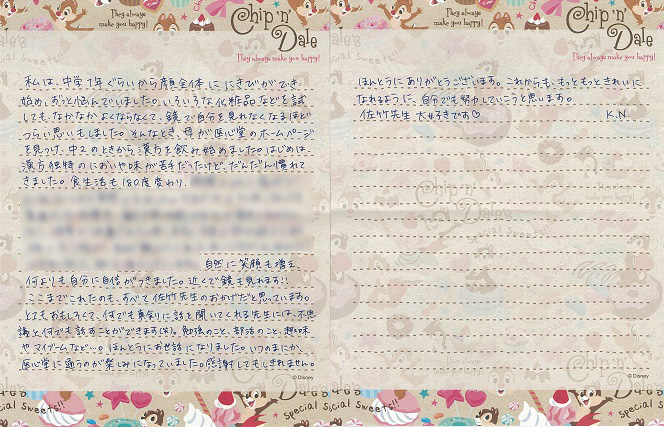 They always
make you happy!
Chip 'n' Dale
They always make you happy!
私は、中学1年ぐらいから顔全体ににきびができ
始め、ずっと悩んでいました。いろいろな化粧品などを試
しても、なかなかよくならなくて、鏡で自分を見れなくなるほど
つらい思いもしました。そんなとき、母が医心堂のホームページ
を見つけ、中2のときから漢方を飲み始めました。はじめは、
漢方独特のにおいや味が苦手だったけど、だんだんと慣れて
きました。食生活も180度変わり、
自然に笑顔も増え、
何よりも自分に自信がつきました。近くで鏡も見れます!!
ここまでこれたのも、すべて佐竹先生のおかげだと思っています。
とてもおもしろくて、何でも真剣に話を聞いてくれる先生には、不思
議と何でも話すことができます(笑)。勉強のこと、部活のこと、趣味
やマイブームなど…。ほんとうにお世話になりました。いつのまにか、
医心堂に通うのが楽しみになっていました。感謝してもしきれません。
© Disney
Special Sweets!!
They always
make you happy!
Chip 'n' Dale
They always make you happy!
ほんとうにありがとうございます。これからも、もっともっときれいに
なれるように、自分でも努力していこうと思います。
佐竹先生 大好きです♡ K.N.
© Disney
Special Sweets!!